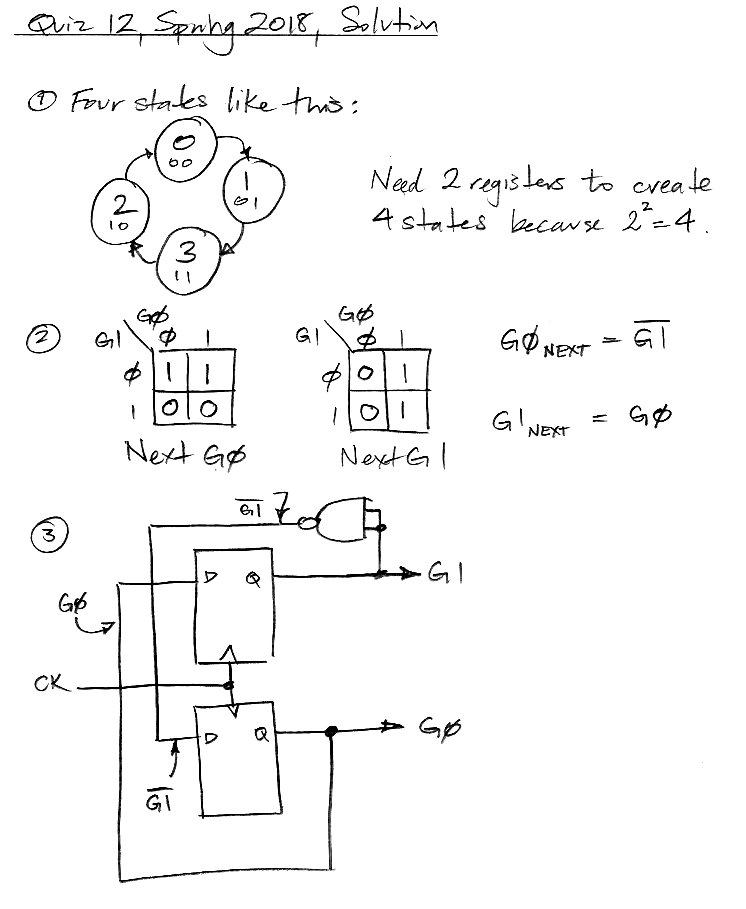 Quiz 12, Spring 2018, Solution
① Four states like this:
0
00
1
01
2
10
3
11
Need 2 registers to create
4 states because 2²=4.
②
GØ
G1 Ø 1
Ø 1 1
1 0 0
Next GØ
GØ
G1 Ø 1
Ø 0 1
1 0 1
Next G1
GØ NEXT = G̅1̅
G1 NEXT = GØ
③
G̅1̅
D Q
G1
GØ
CK
D Q
GØ
G̅1̅